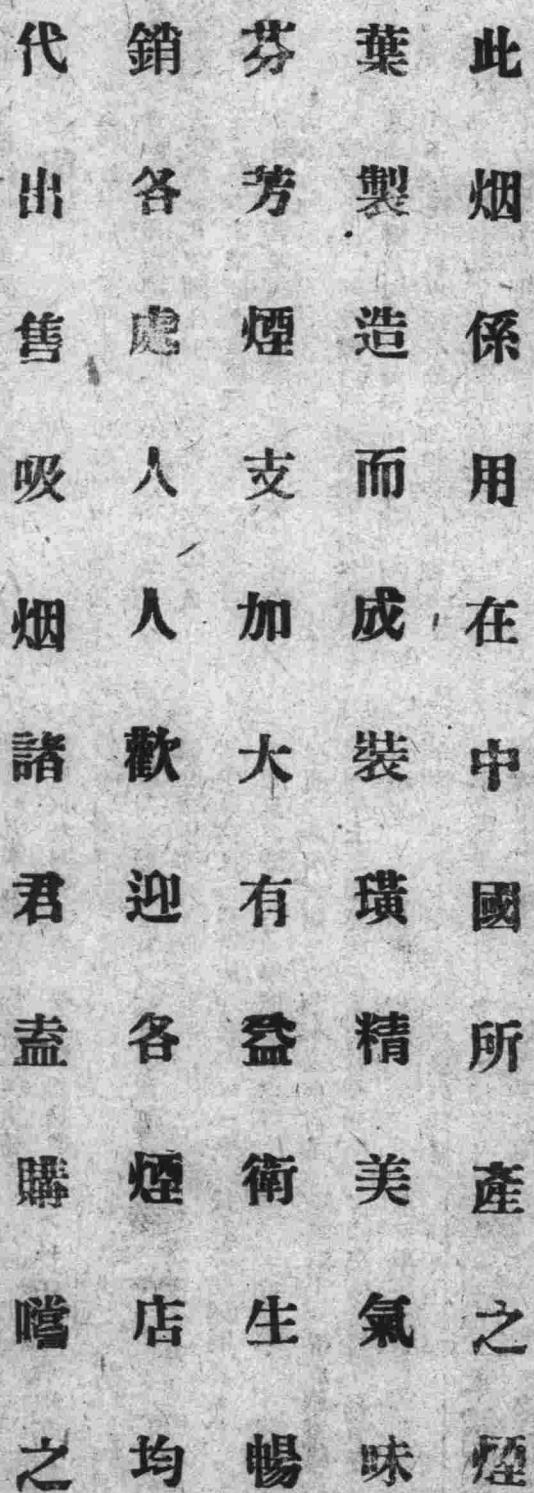 此烟係用在中國所產之煙
葉製造而成裝璜精美氣味
芬芳煙支加大有益衛生暢
銷各處人人歡迎各煙店均
代出售吸烟諸君盍購嚐之